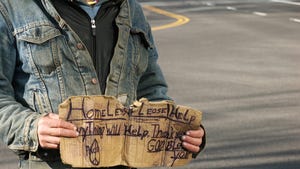 HOMELESS PLEASE HELP
ANYTHING WILL HELP. THANK
GOD BLESS
YOU